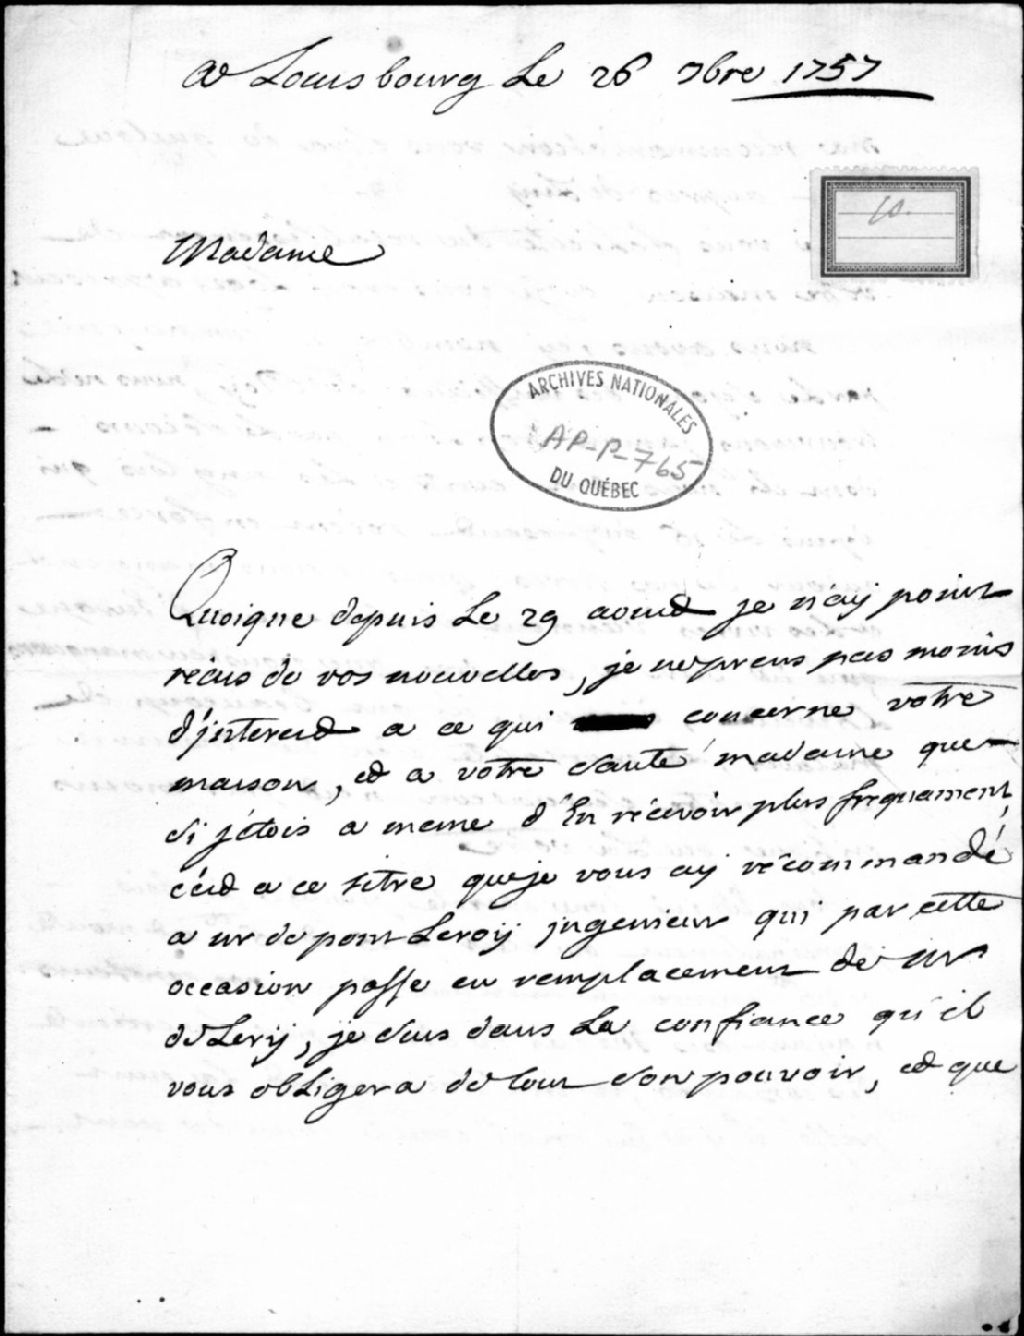 A Louisbourg Le 26 7bre 1757
10.
Madame
ARCHIVES NATIONALES
AP-P-765
DU QUÉBEC
Quoique depuis Le 29 aoust je n'aÿ point
récus de vos nouvelles, je ne prens pas moins
d'jnterest a ce qui concerne votre
maison, et a votre santé madame que
si jétois a meme d'En récevoir plus frequament,
c'est a ce titre que je vous aÿ récommandé
a mr de pont Leroÿ jngenieur qui par cette
occasion passe en remplacement de Mr
de Lerÿ, je suis dans La confiance qu'il
vous obLigera de tout son pouvoir, et que